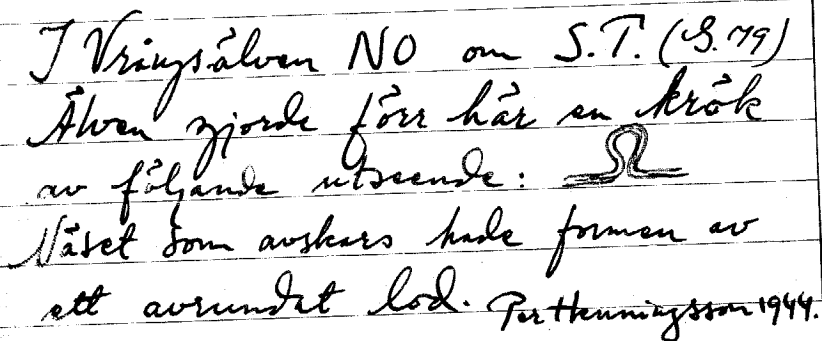 I Vrångsälven NO om S.T. (S. 79)
Älven gjorde förr här en krök
av följande utseende:
Näset som avskars hade formen av
ett avrundat lod. Per Henningsson 1944.